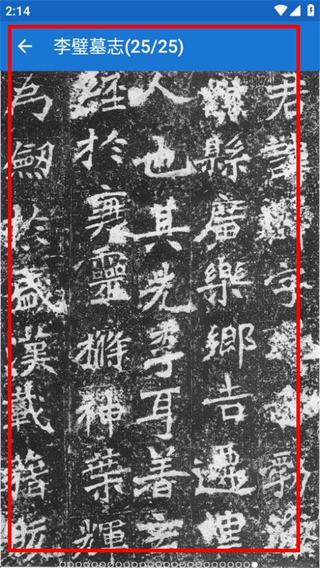 2:14
李璧墓志(25/25)
君諱字勃
縣廣樂鄉吉遷里
人也其先李耳著玄
經於靈神葉輝
為劔於盛漢載籍昞